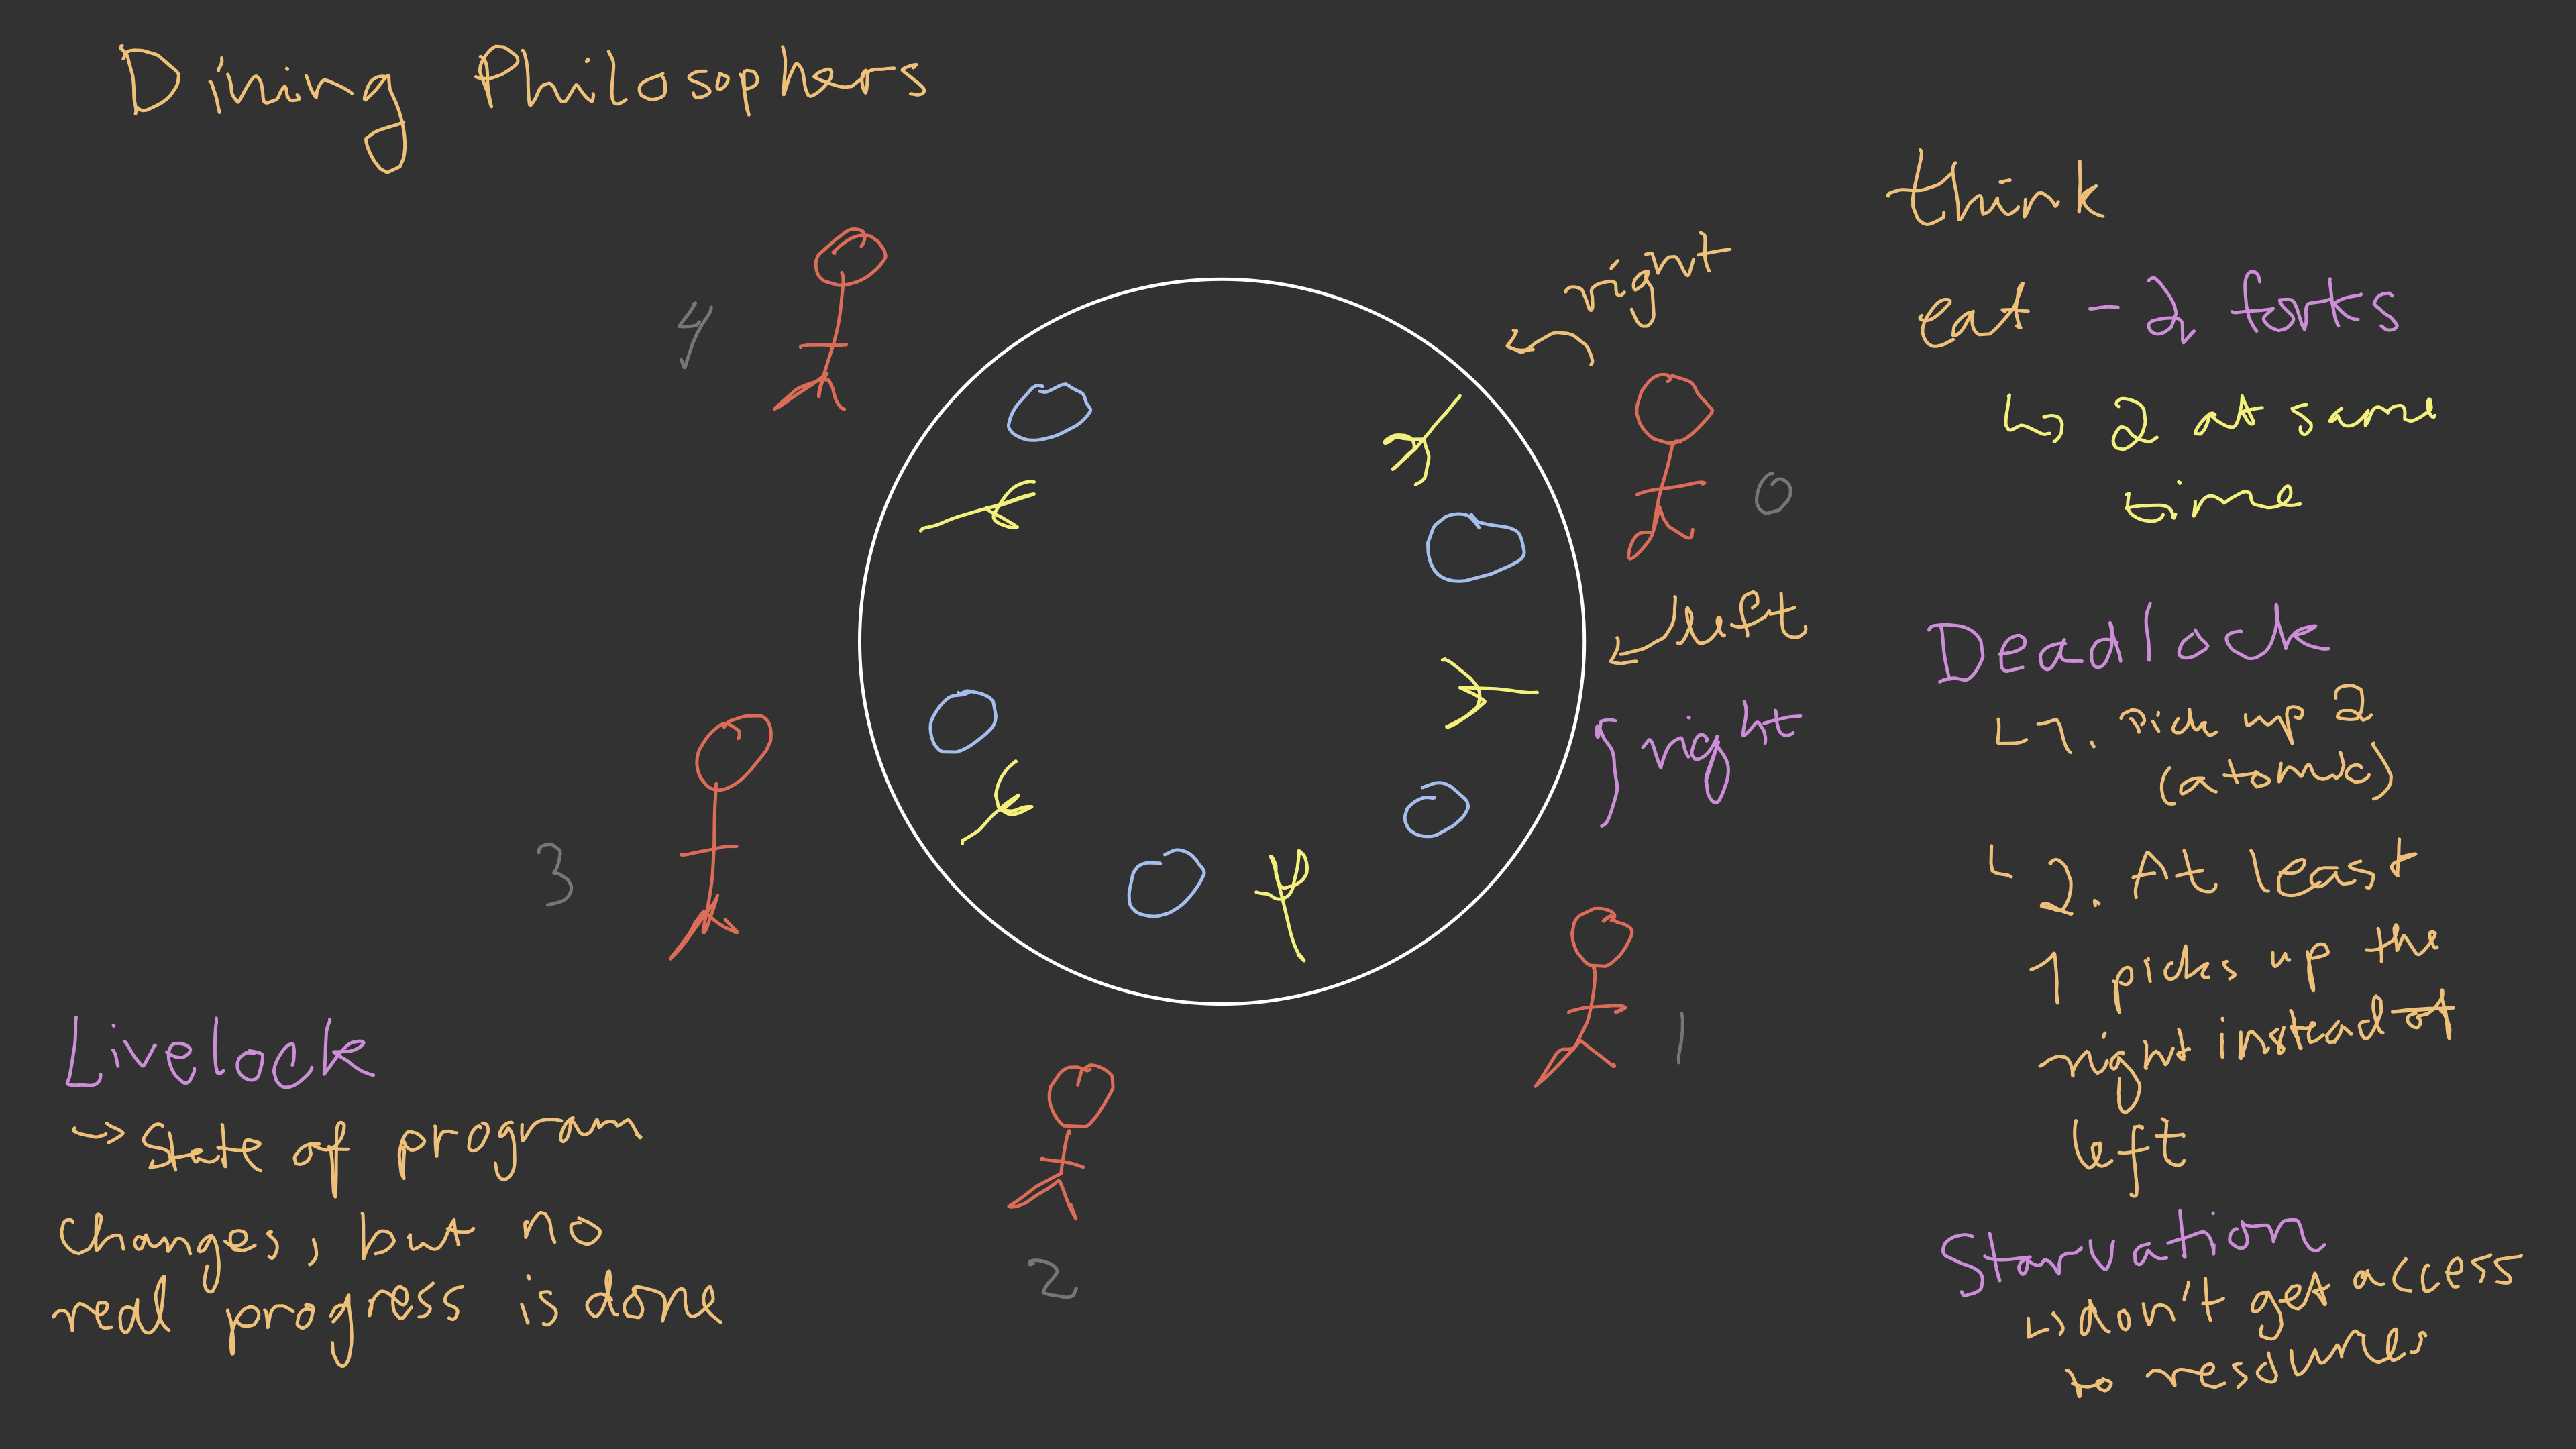 Dining Philosophers
think
eat - 2 forks
↳ 2 at same
time
right
4
0
left
right
3
1
2
Deadlock
↳ 1. Pick up 2
(atomic)
↳ 2. At least
1 picks up the
right instead of
left
Starvation
↳ don't get access
to resources
Livelock
→ State of program
changes, but no
real progress is done